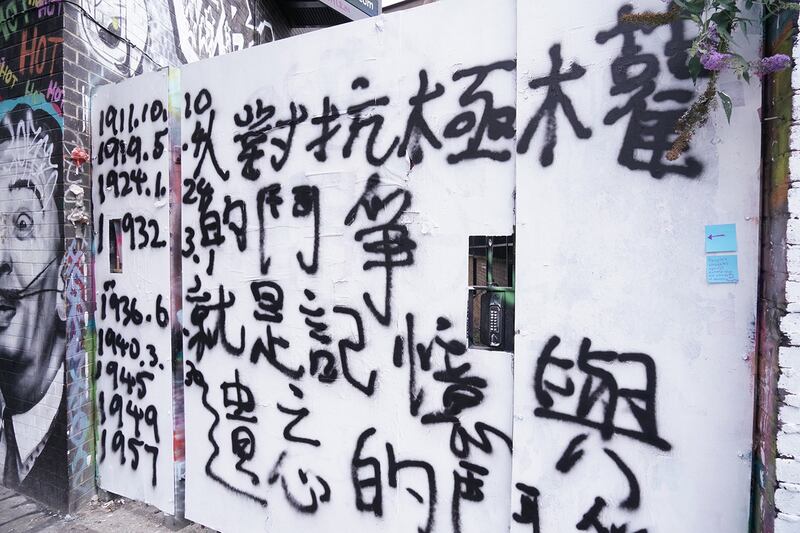 HOT
HOT
HOT
HOT
.com
1911.10.10
1919.5.
1924.1.24
1932.3.1
1936.6.
1940.3.30
1945
1949
1957
人對抗極權
的鬥爭
就是記憶與
遺忘的鬥